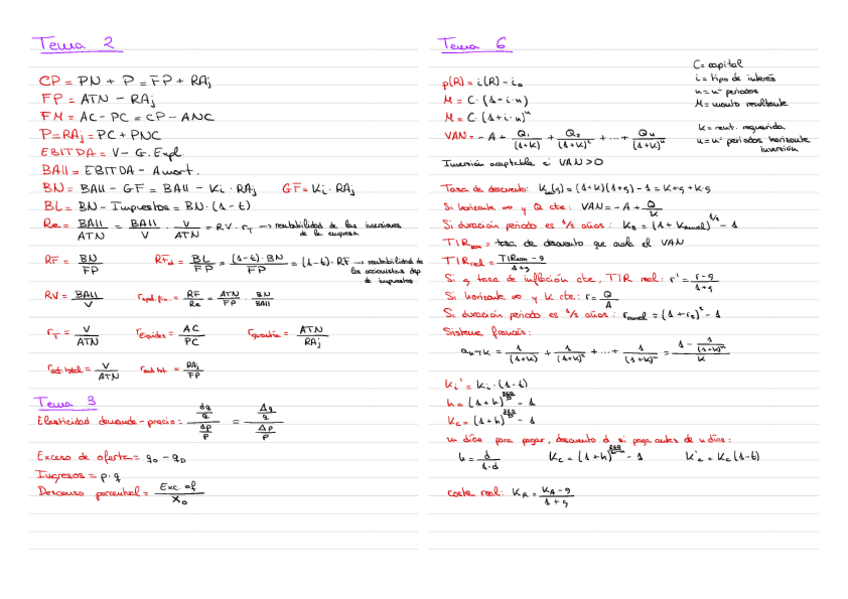 Tema 2
CP = PN + P = FP + RAj
FP = ATN - RAj
FM = AC - PC = CP - ANC
P = RAj = PC + PNC
EBITDA = V - G. Expl.
BAII = EBITDA - Amort.
BN = BAII - GF = BAII - Ki · RAj GF = Ki · RAj
BL = BN - Impuestos = BN · (1 - t)
Re = BAII/ATN = BAII/V · V/ATN = RV · rT → rentabilidad de las inversiones de la empresa
RF = BN/FP RFd = BL/FP = (1-t)·BN/FP = (1-t) · RF → rentabilidad de los accionistas dsp de impuestos
RV = BAII/V rapal.fin. = RF/Re = ATN/FP · BN/BAII
rT = V/ATN rliquidez = AC/PC rgarantía = ATN/RAj
rrot.total = V/ATN = RAj/FP
Tema 3
Elasticidad demanda-precio = dq/q / dp/p = Δq/q / Δp/p
Exceso de oferta = qo - qD
Ingresos = p · q
Descenso porcentual = Exc. of/xo
Tema 6
C = capital
i = tipo de interés
n = nº periodos
M = monto resultante
k = rent. requerida
n = nº periodos horizonte inversión
p(R) = i(R) - io
M = C · (1 + i · n)
M = C · (1 + i)^n
VAN = -A + Q1/(1+k) + Q2/(1+k)² + ... + Qn/(1+k)^n
Inversión aceptable si VAN > 0
Tasa de descuento: (g) = (1+k)(1+g) - 1 = k + g + k·g
Si horizonte ∞ y Q cte: VAN = -A + Q/k
Si duración periodo es 1/s años: Ks = (1 + Kanual)^1/s - 1
TIR = tasa de descuento que anula el VAN
TIRreal = TIRnom - g/1+g
Si g tasa de inflación cte, TIR real: r' = r-g/1+g
Si horizonte ∞ y K cte: r = Q/A
Si duración periodo es 1/s años: ranual = (1 + rs)^s - 1
Sistema francés:
an¬k = 1/(1+k) + 1/(1+k)² + ... + 1/(1+k)^n = 1 - 1/(1+k)^n / k
Ki' = Ki · (1-t)
= (1+h) - 1
Kc = (1+h) - 1
n días para pagar, descuento d si paga antes de u días:
h = d/1-d Kc = (1+h) - 1 K'c = Kc(1-t)
coste real: KR = KA - g/1+g